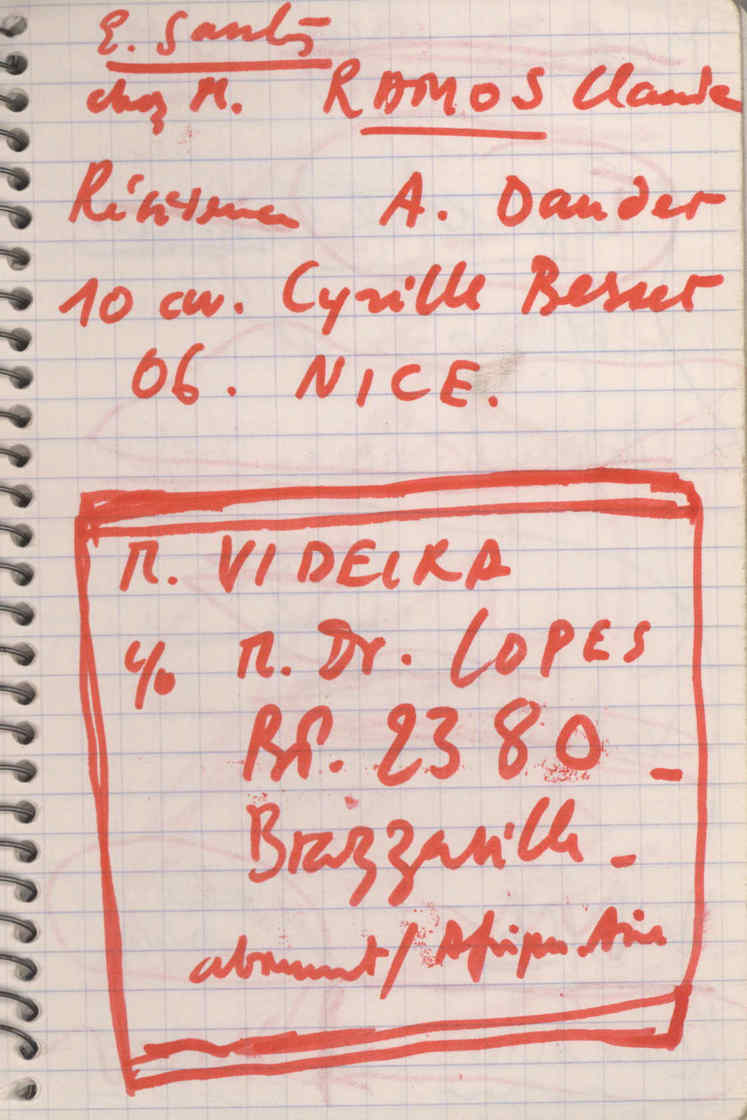 E. Santos
chez M. RAMOS Claude
Résidence A. Daudet
10 av. Cyrille Besset
06. NICE.
M. VIDEIRA
c/o M. Dr. LOPES
BP. 2380 -
Brazzaville -
abonnement / Afrique-Asie